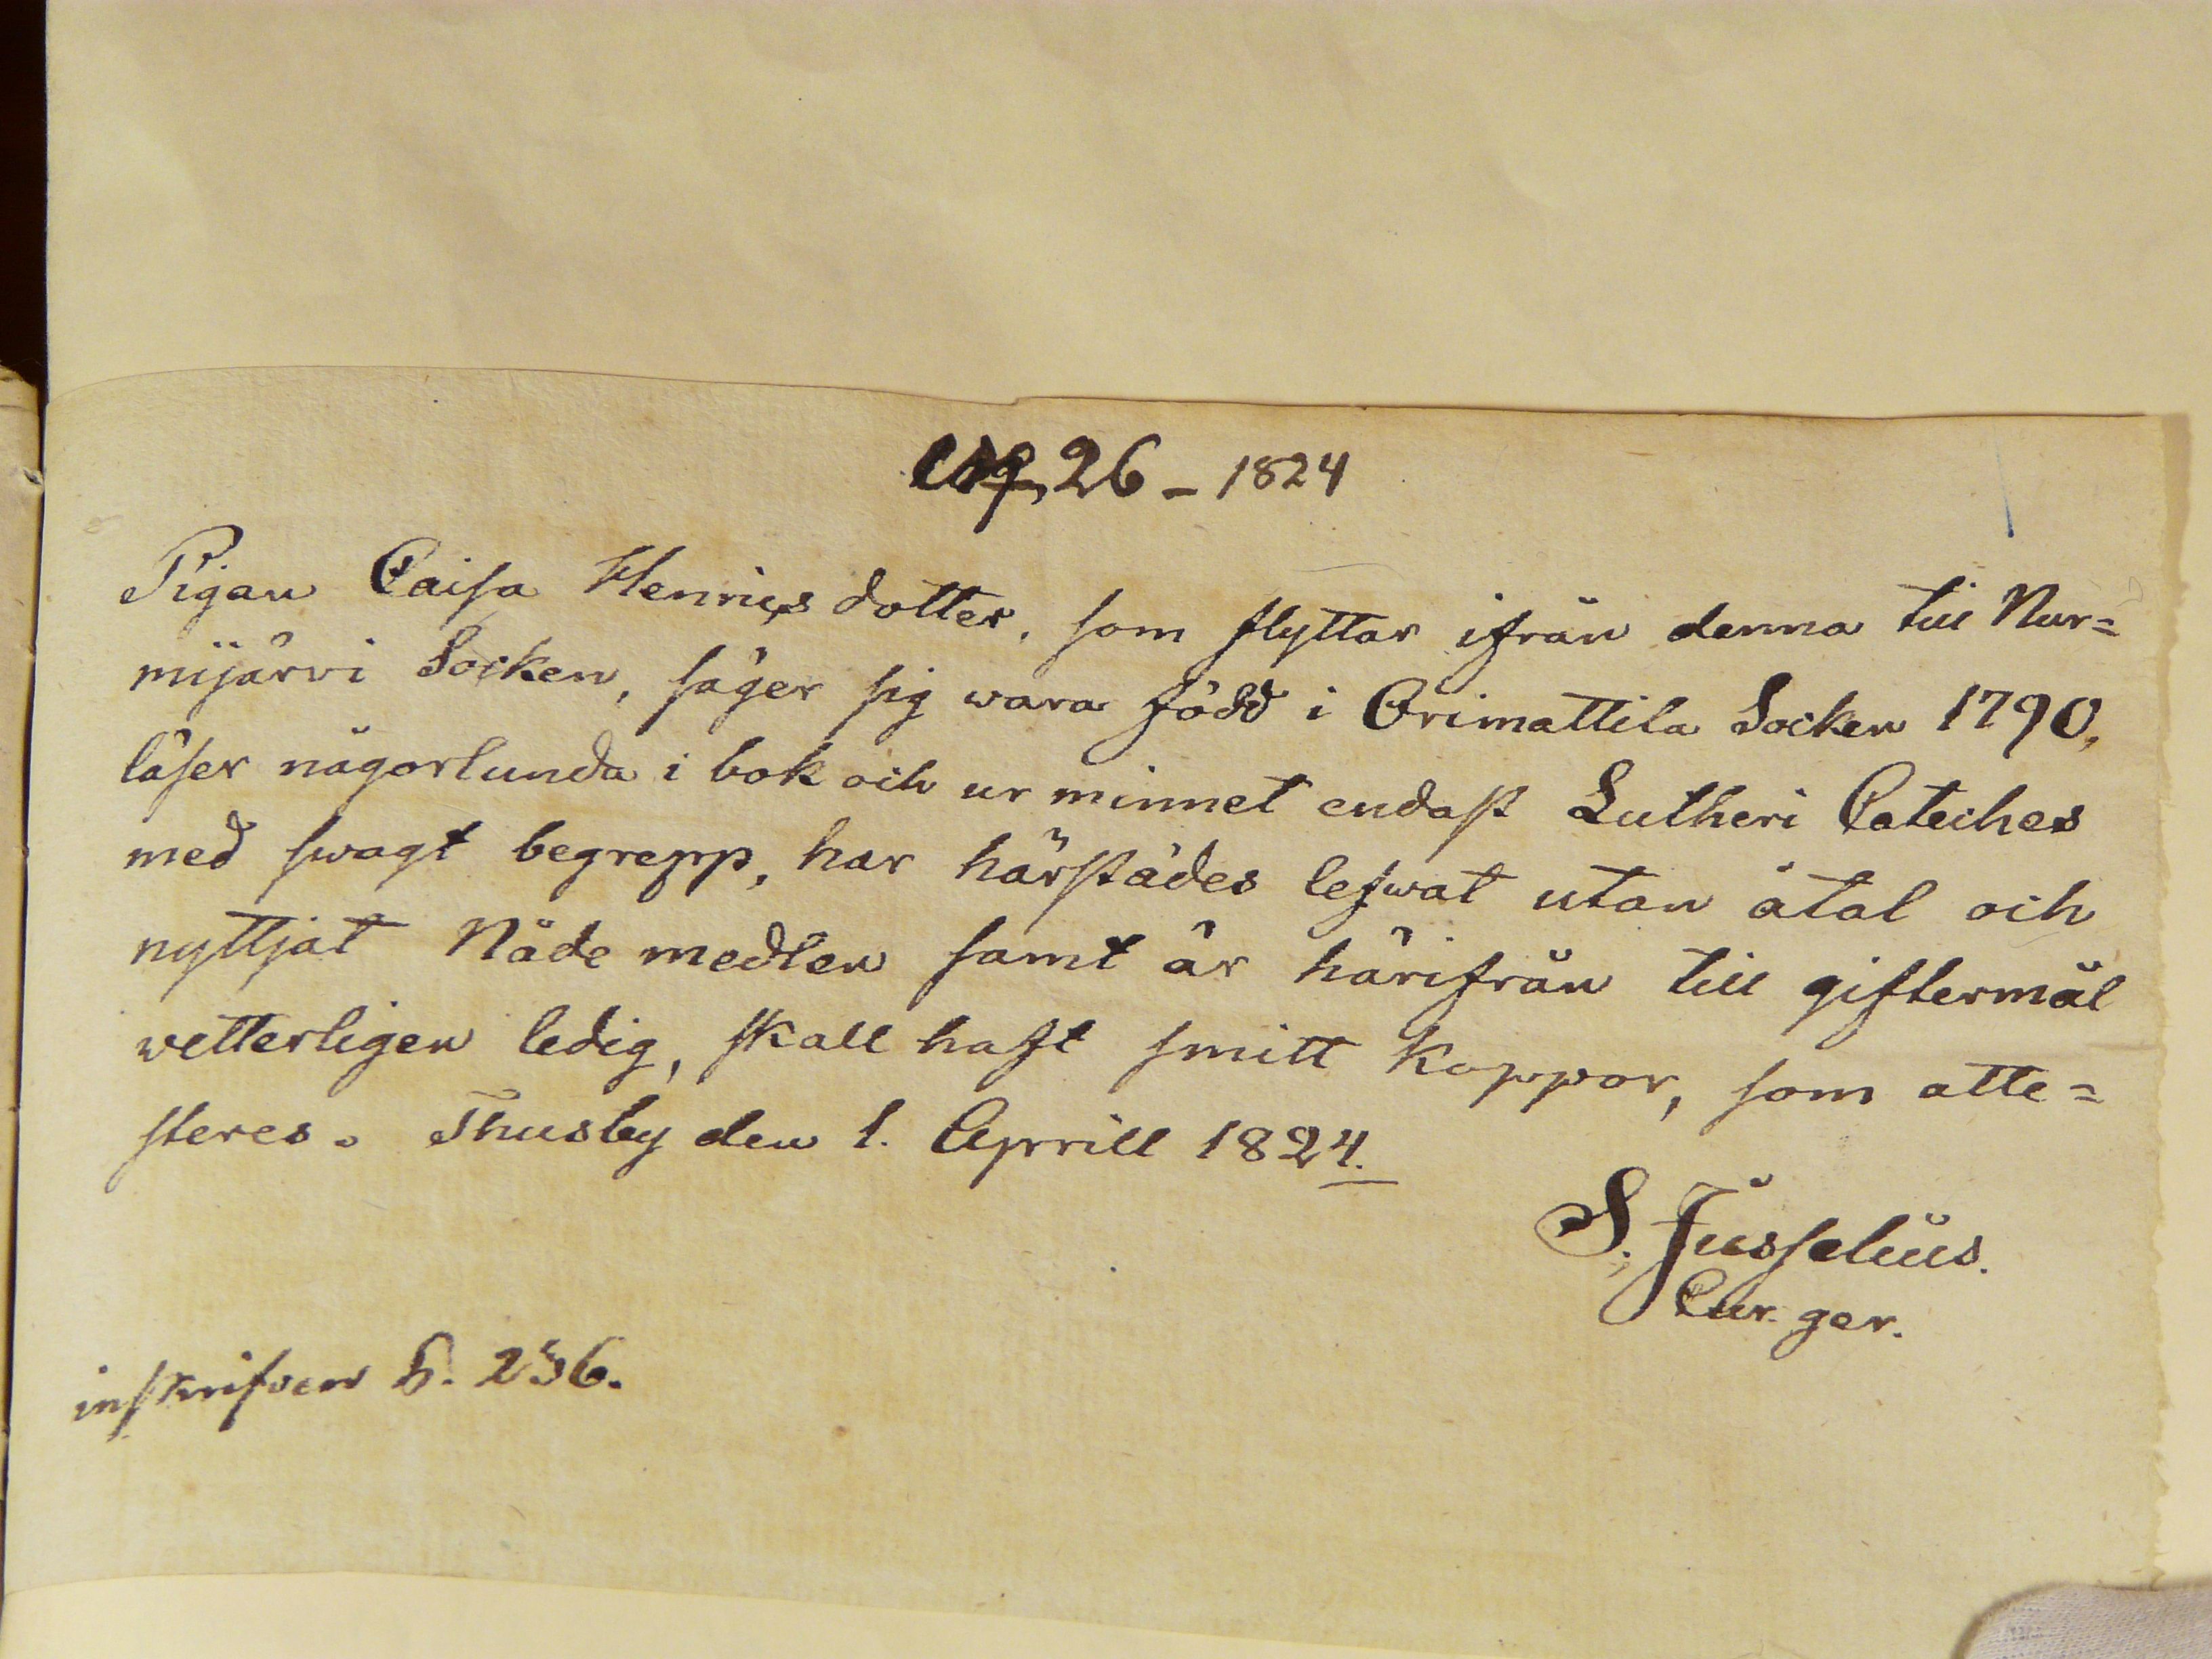 26 - 1824
Pigan Caisa Henricsdotter, som flyttar ifrån denna till Nur=
mijärvi Socken, säger sig wara född i Orimattila Socken 1790,
läser någorlunda i bok och ur minnet endast Lutheri Cateches
med swagt begrepp, har härstädes lefwat utan åtal och
nyttjat Nåde medlen samt är härifrån till giftermål
wetterligen ledig, skall haft smitt koppor, som atte=
steres. Thusby den 1. Aprill 1824.
S. Jusselius.
Cur. ger.
inskrifven p. 236.